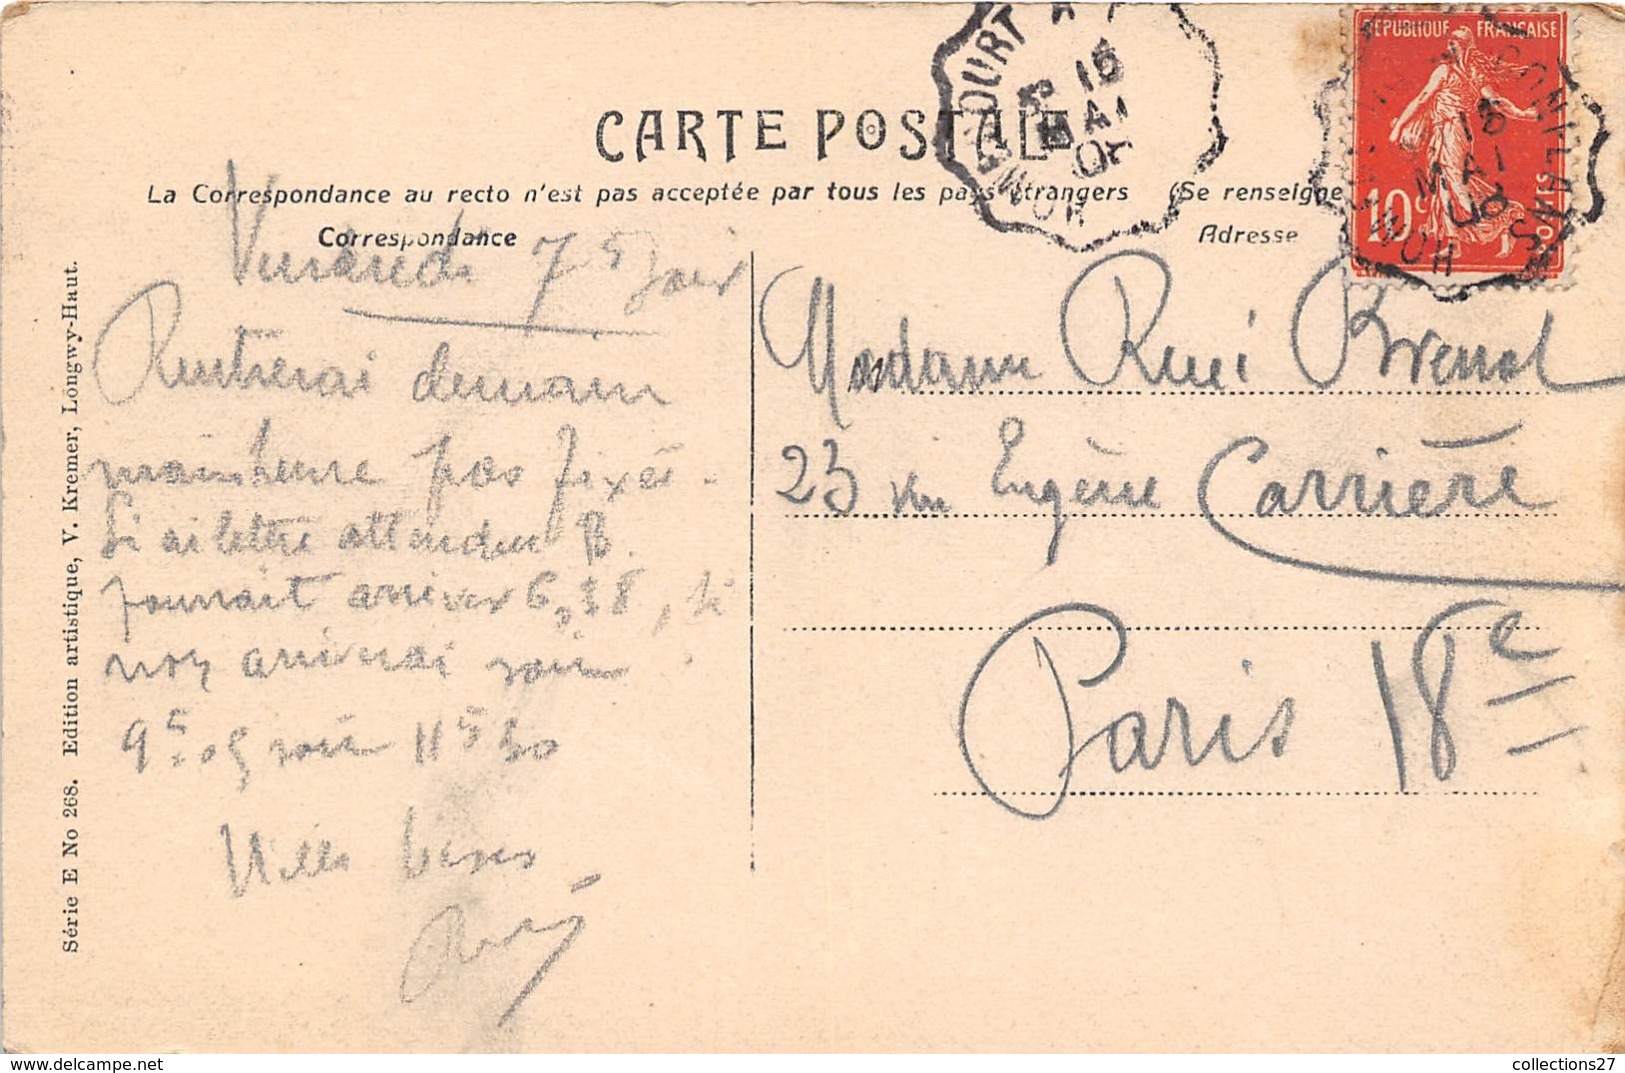 CARTE POSTALE
La Correspondance au recto n'est pas acceptée par tous les pays étrangers (Se renseigne
Correspondance
Adresse
RÉPUBLIQUE FRANÇAISE
10c
POSTES
HOMÉCOURT A
15
MAI
15
MAI
08
Vendredi 7h soir
Rentrerai demain
mais heure pas fixée.
Si ai lettre attendue B.
pourrait arriver 6,38, si
non arriverai soir
9h05 soir 11h30
Mille bises
René
Madame René Brenot
23 rue Eugène Carrière
Paris 18e
Série E No 268. Edition artistique, V. Kremer, Longwy-Haut.
collections27